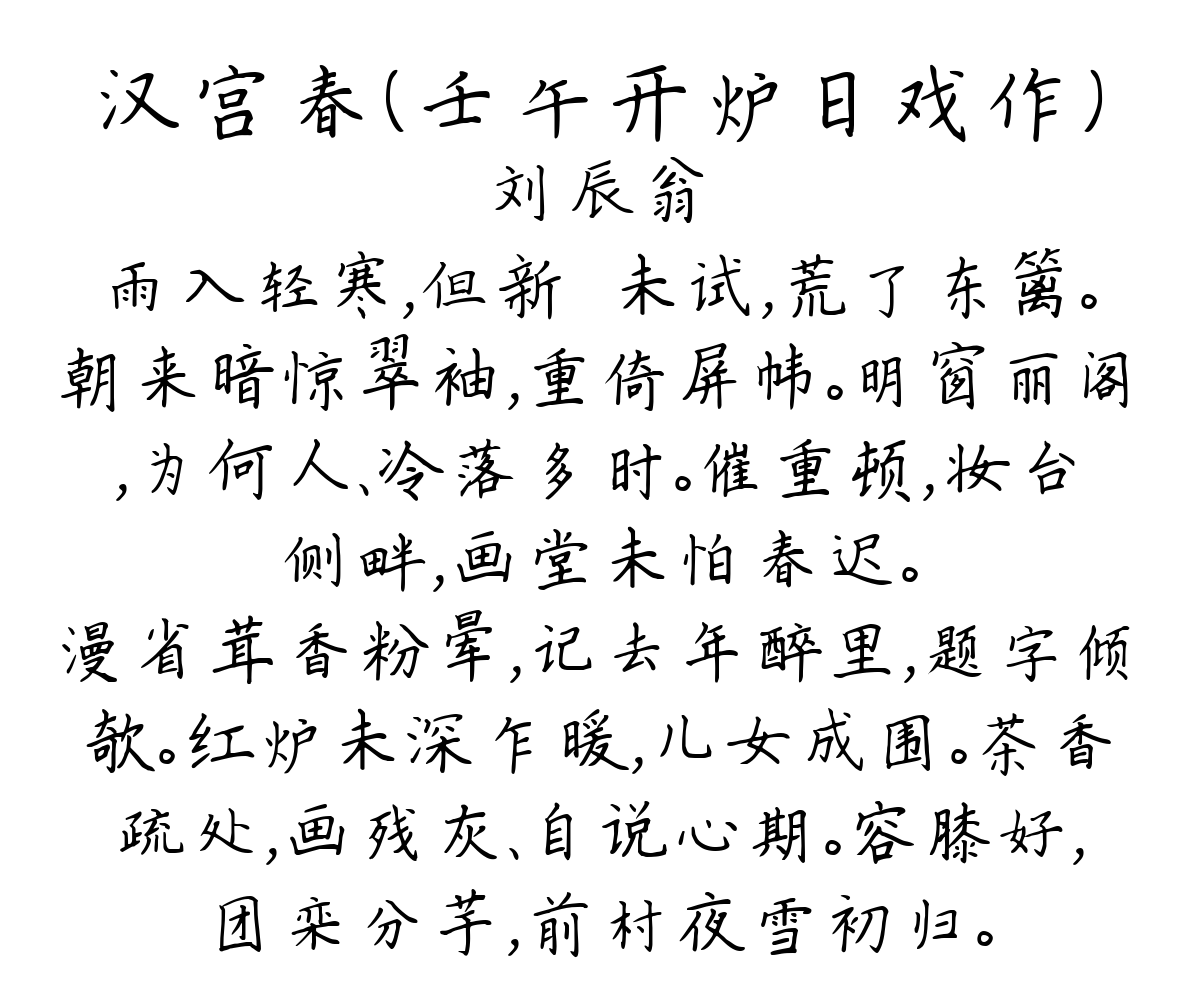 汉宫春(壬午开炉日戏作)
刘辰翁
雨入轻寒,但新 未试,荒了东篱。
朝来暗惊翠袖,重倚屏帏。明窗丽阁
,为何人、冷落多时。催重顿,妆台
侧畔,画堂未怕春迟。
漫省茸香粉晕,记去年醉里,题字倾
欹。红炉未深乍暖,儿女成围。茶香
疏处,画残灰、自说心期。容膝好,
团栾分芋,前村夜雪初归。